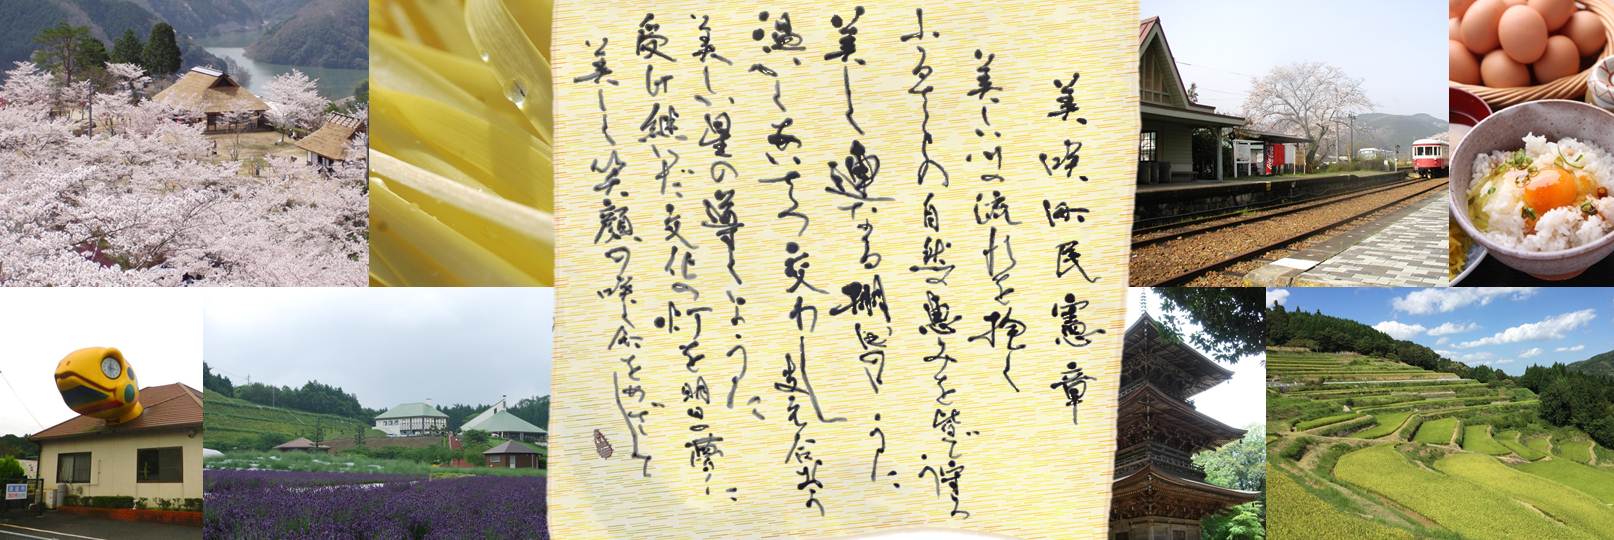 美咲町民憲章
美しい川の流れを抱く
ふるさとの自然の恵みを皆で守ろう
美しく連なる棚田のように
温かくあいさつ交わし支え合おう
美しい星の導くように
受け継いだ文化の灯を明日の夢に
美しく笑顔の咲く命をめざして